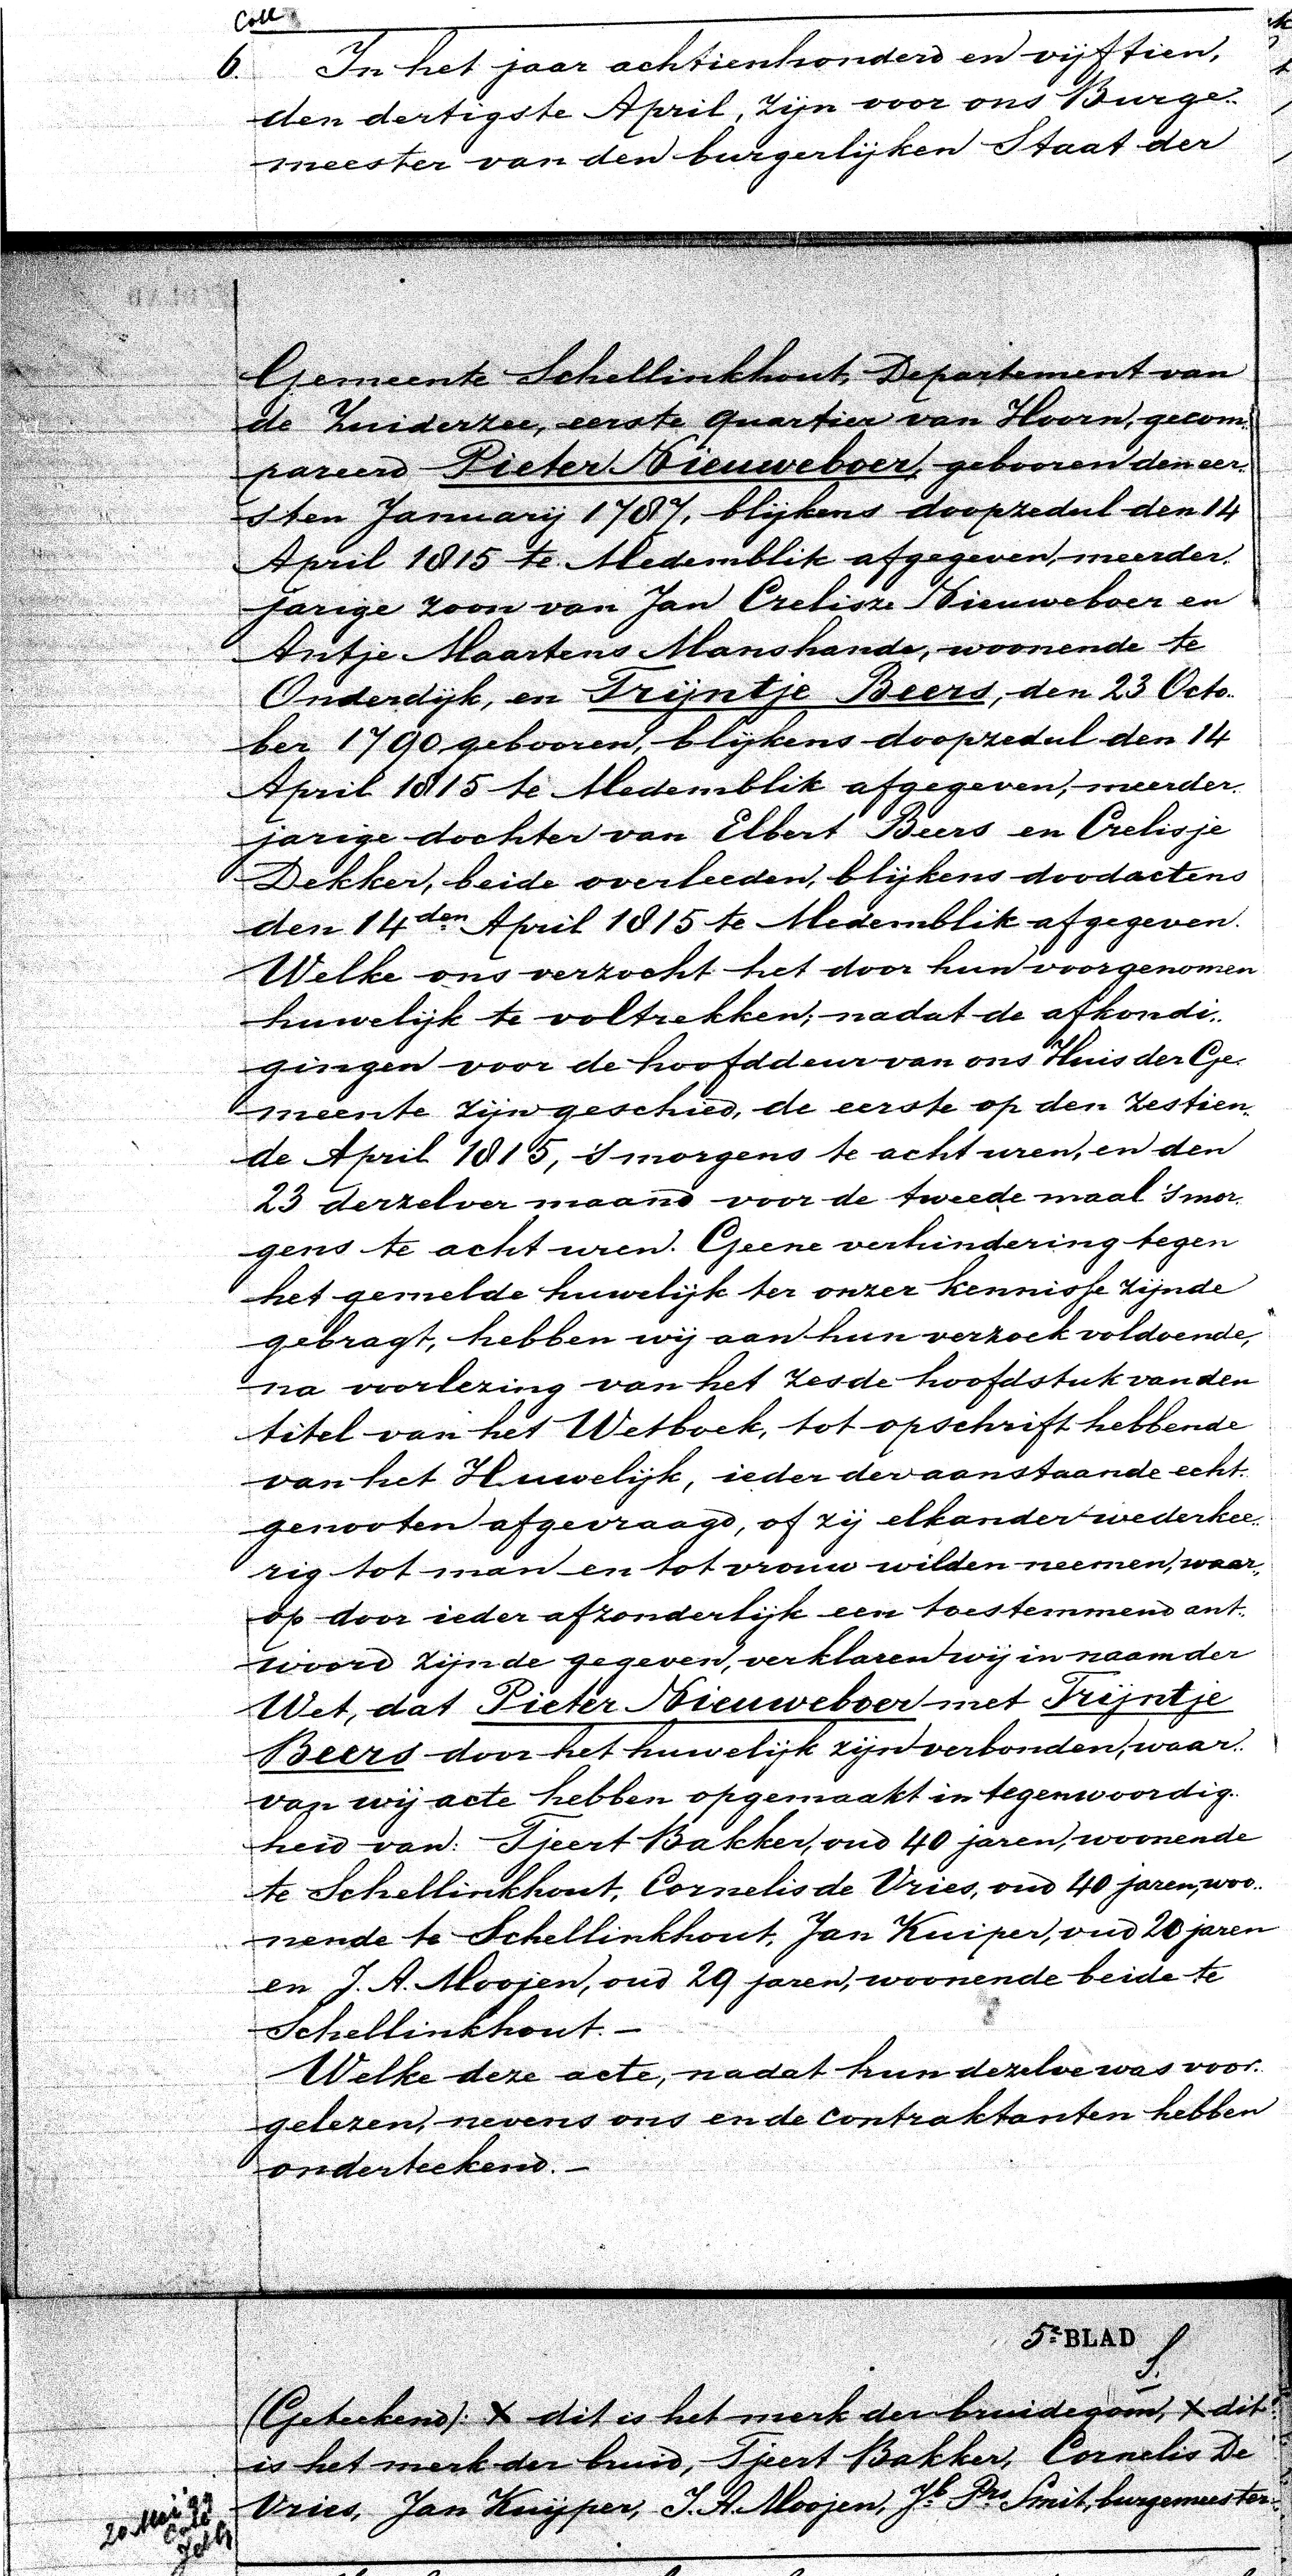 Coll
6. In het jaar achtienhonderd en vijftien,
den dertigste April, zijn voor ons Burge-
meester van den burgerlijken Staat der
Gemeente Schellinkhout, Departement van
de Zuiderzee, eerste quartier van Hoorn, gecom-
pareerd Pieter Nieuweboer, gebooren den eer-
sten Januarij 1787, blijkens doopzedul den 14
April 1815 te Medemblik afgegeven, meerder-
jarige zoon van Jan Crelisze Nieuweboer en
Antje Maartens Manshande, woonende te
Onderdijk, en Trijntje Beers, den 23 Octo-
ber 1790 gebooren, blijkens doopzedul den 14
April 1815 te Medemblik afgegeven, meerder-
jarige dochter van Elbert Beers en Crelisje
Dekker, beide overleeden, blijkens doodactens
den 14den April 1815 te Medemblik afgegeven.
Welke ons verzocht het door hun voorgenomen
huwelijk te voltrekken; nadat de afkondi-
gingen voor de hoofddeur van ons Huis der Ge-
meente zijn geschied, de eerste op den zestien-
de April 1815, s'morgens te acht uren, en den
23 derzelver maand voor de tweede maal s'mor-
gens te acht uren. Geene verhindering tegen
het gemelde huwelijk ter onzer kennisse zijnde
gebragt, hebben wij aan hun verzoek voldoende,
na voorlezing van het zesde hoofdstuk van den
titel van het Wetboek, tot opschrift hebbende
van het Huwelijk, ieder der aanstaande echt-
genooten afgevraagd, of zij elkander wederkee-
rig tot man en tot vrouw wilden neemen, waar-
op door ieder afzonderlijk een toestemmend ant-
woord zijnde gegeven, verklaren wij in naam der
Wet, dat Pieter Nieuweboer met Trijntje
Beers door het huwelijk zijn verbonden, waar-
van wij acte hebben opgemaakt in tegenwoordig-
heid van: Tjeert Bakker, oud 40 jaren, woonende
te Schellinkhout, Cornelis de Vries, oud 40 jaren, woo-
nende te Schellinkhout, Jan Kuiper, oud 20 jaren
en J. A. Moojen, oud 29 jaren, woonende beide te
Schellinkhout. –
Welke deze acte, nadat hun dezelve was voor-
gelezen, nevens ons en de contraktanten hebben
onderteekend. –
5e BLAD
(Geteekend): X dit is het merk der bruidegom, X dit
is het merk der bruid, Tjeert Bakker, Cornelis De
Vries, Jan Kuijper, J. A. Moojen, Jb Prs Smit, burgemeester.
20 Mei
Coll